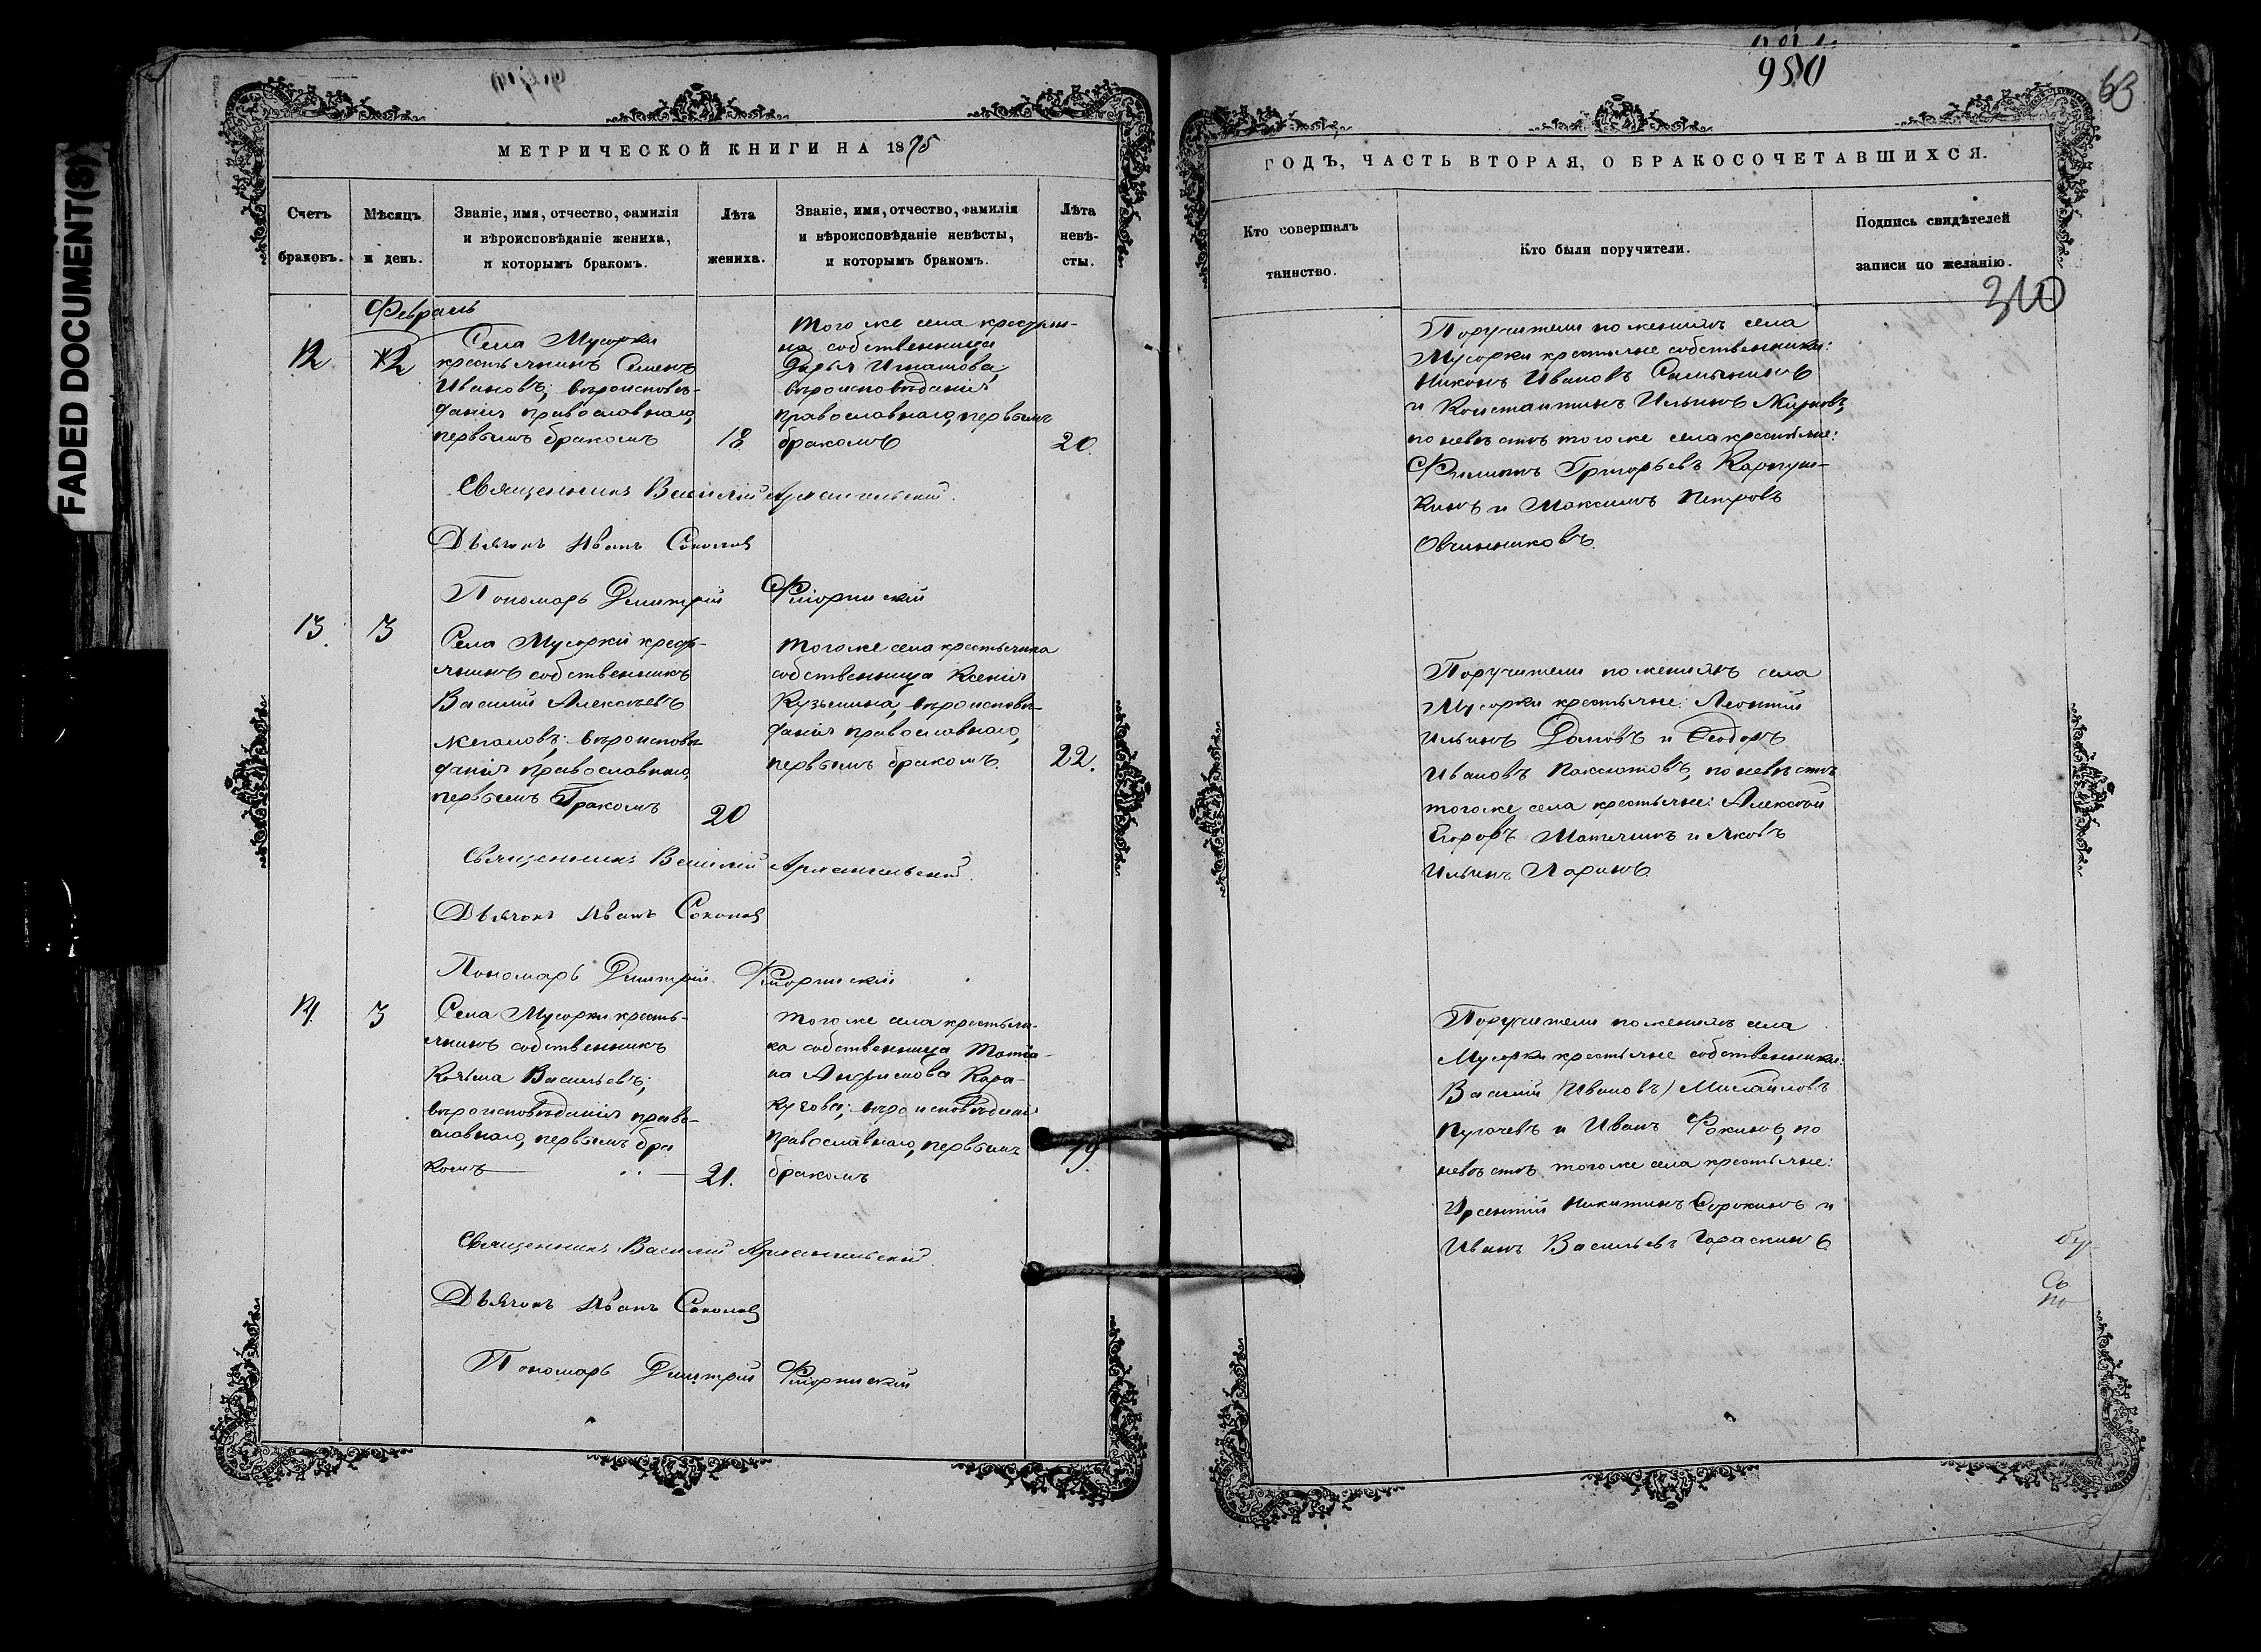 FADED DOCUMENT(S)
МЕТРИЧЕСКОЙ КНИГИ НА 1875
Счетъ браковъ.
Мѣсяцъ и день.
Званіе, имя, отчество, фамилія
и вѣроисповѣданіе жениха,
и которымъ бракомъ.
Лѣта жениха.
Званіе, имя, отчество, фамилія
и вѣроисповѣданіе невѣсты,
и которымъ бракомъ.
Лѣта невѣ-
сты.
Февраль
12
2
Села Мусорки
крестьянинъ Семенъ
Ивановъ; вѣроисповѣ-
данія православнаго,
первымъ бракомъ
18
Того же села крестьян-
ка собственница
Дарья Игнатова,
вѣроисповѣданія
православнаго, первымъ
бракомъ
20.
Священникъ Василій Архангельскій.
Дьячокъ Иванъ Соколовъ
Пономарь Димитрій
13.
3
Села Мусорки кресть-
янинъ собственникъ
Василій Алексѣевъ
Жегаловъ; вѣроисповѣ-
данія православнаго,
первымъ бракомъ
20
Того же села крестьянка
собственница Ксенія
Кузьмина, вѣроисповѣ-
данія православнаго,
первымъ бракомъ.
22.
Священникъ Василій Архангельскій.
Дьячокъ Иванъ Соколовъ
Пономарь Димитрій
14.
3
Села Мусорки кресть-
янинъ собственникъ
Козьма Васильевъ;
вѣроисповѣданія право-
славнаго, первымъ бра
комъ
21.
Того же села крестьян-
ка собственница Татіа-
на
вѣроисповѣданія
православнаго, первымъ
бракомъ
19.
Священникъ Василій Архангельскій.
Дьячокъ Иванъ Соколовъ
Пономарь Димитрій
980
63
ГОДЪ, ЧАСТЬ ВТОРАЯ, О БРАКОСОЧЕТАВШИХСЯ.
Кто совершалъ
таинство.
Кто были поручители.
Подпись свидѣтелей
записи по желанію.
310
Поручители по женихѣ села
Мусорки крестьяне собственники:
Никонъ Ивановъ
и Константинъ Ильинъ Жирновъ,
по невѣстѣ того же села крестьяне:
Филиппъ Григорьевъ Карпуш-
кинъ и Максимъ Петровъ
Овчинниковъ.
Поручители по женихѣ села
Мусорки крестьяне: Леонтій
Ильинъ и Ѳеодоръ
Ивановъ по невѣстѣ
того же села крестьяне: Алексѣй
Егоровъ и Яковъ
Ильинъ Ларинъ.
Поручители по женихѣ села
Мусорки крестьяне собственники:
Василій (Ивановъ) Михайловъ
Пугачевъ и Иванъ Фокинъ, по
невѣстѣ того же села крестьяне:
Арсентій Никитинъ Сорокинъ и
Иванъ Васильевъ